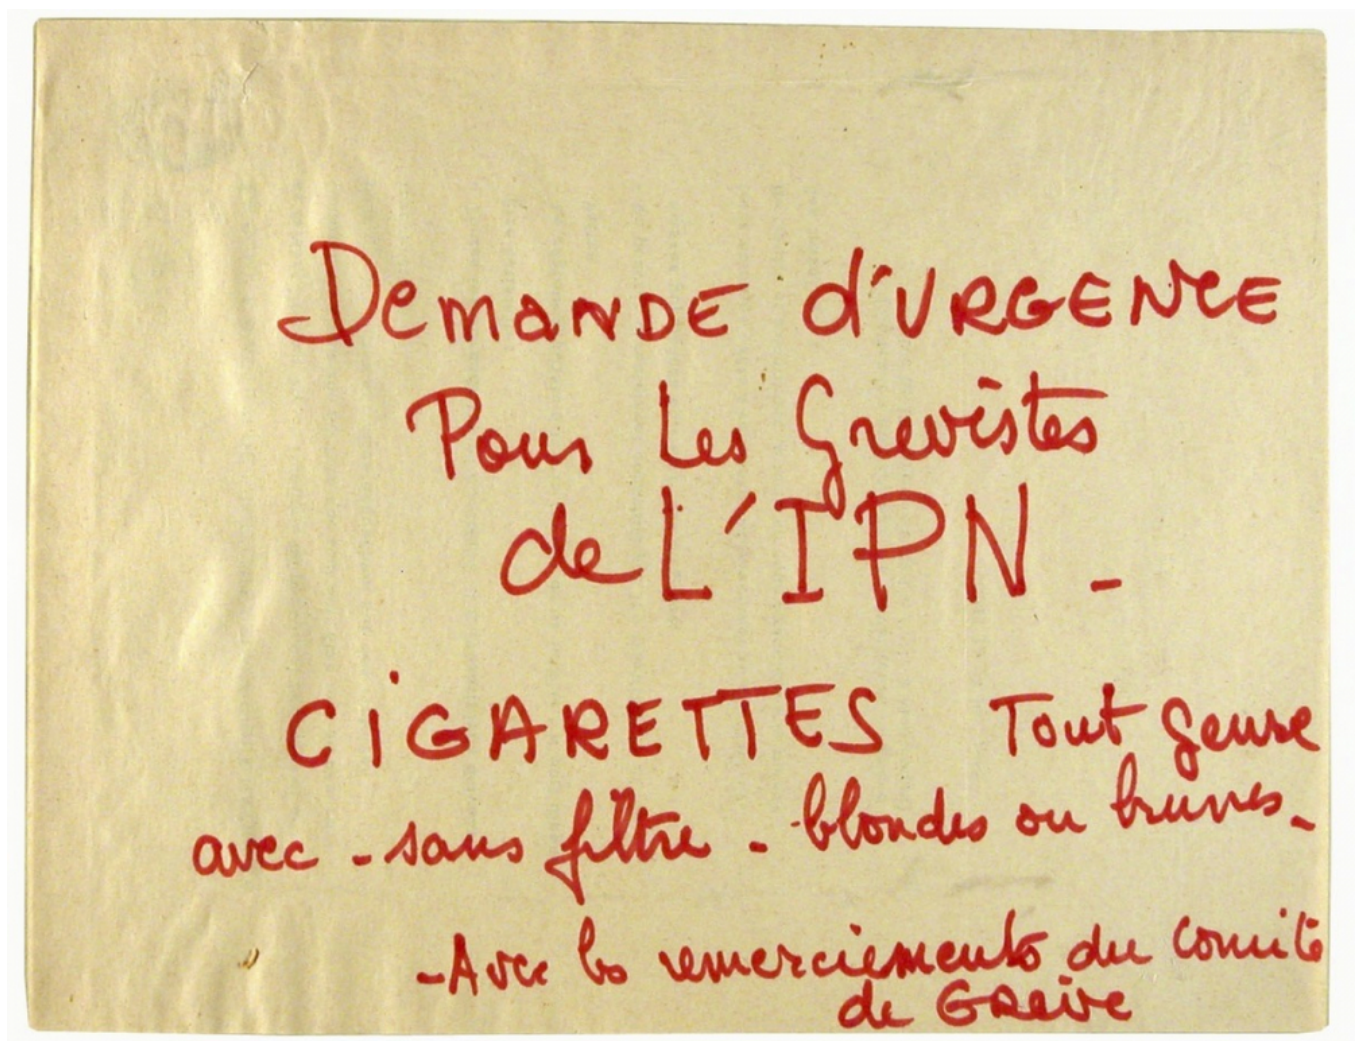 Demande d'URGENCE
Pour Les Grevistes
de L'IPN -
CIGARETTES Tout genre
avec - sans filtre - blondes ou brunes -
- Avec les remerciements du comité
de Greive